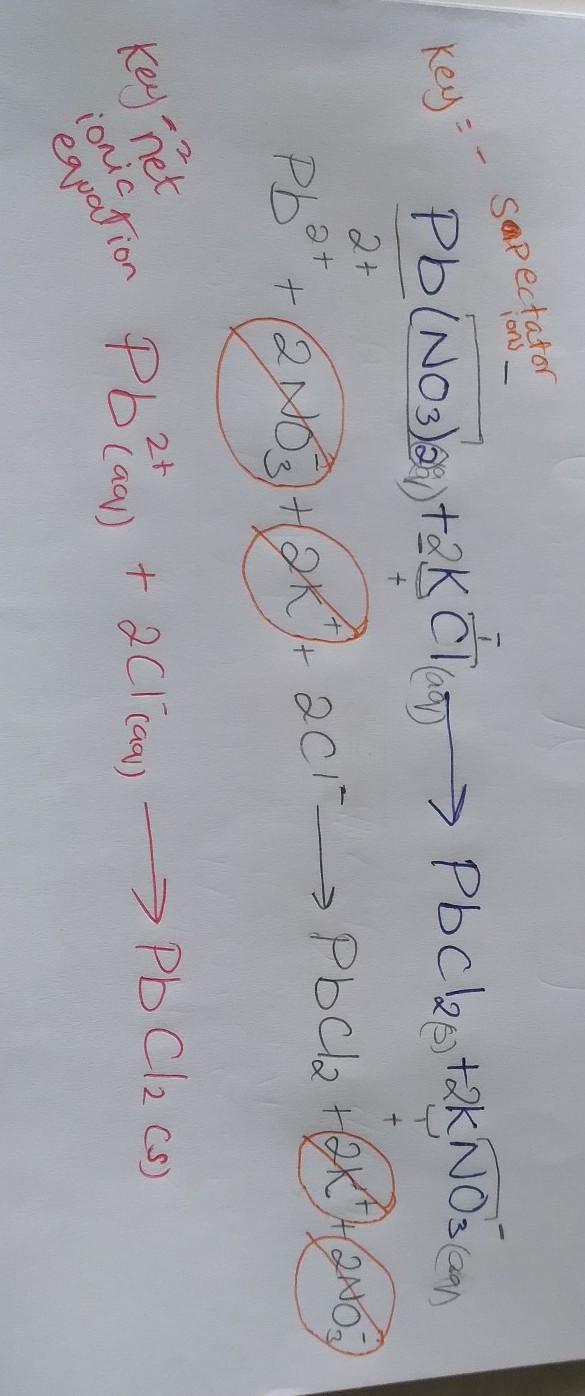 Key:- Sapectator ions -
Pb(NO3)2(aq) + 2KCl(aq) → PbCl2(s) + 2KNO3(aq)
2+ + - + -
Pb2+ + 2NO3- + 2K+ + 2Cl- → PbCl2 + 2K+ + 2NO3-
Key-2 net ionic equation
Pb2+(aq) + 2Cl-(aq) → PbCl2(s)